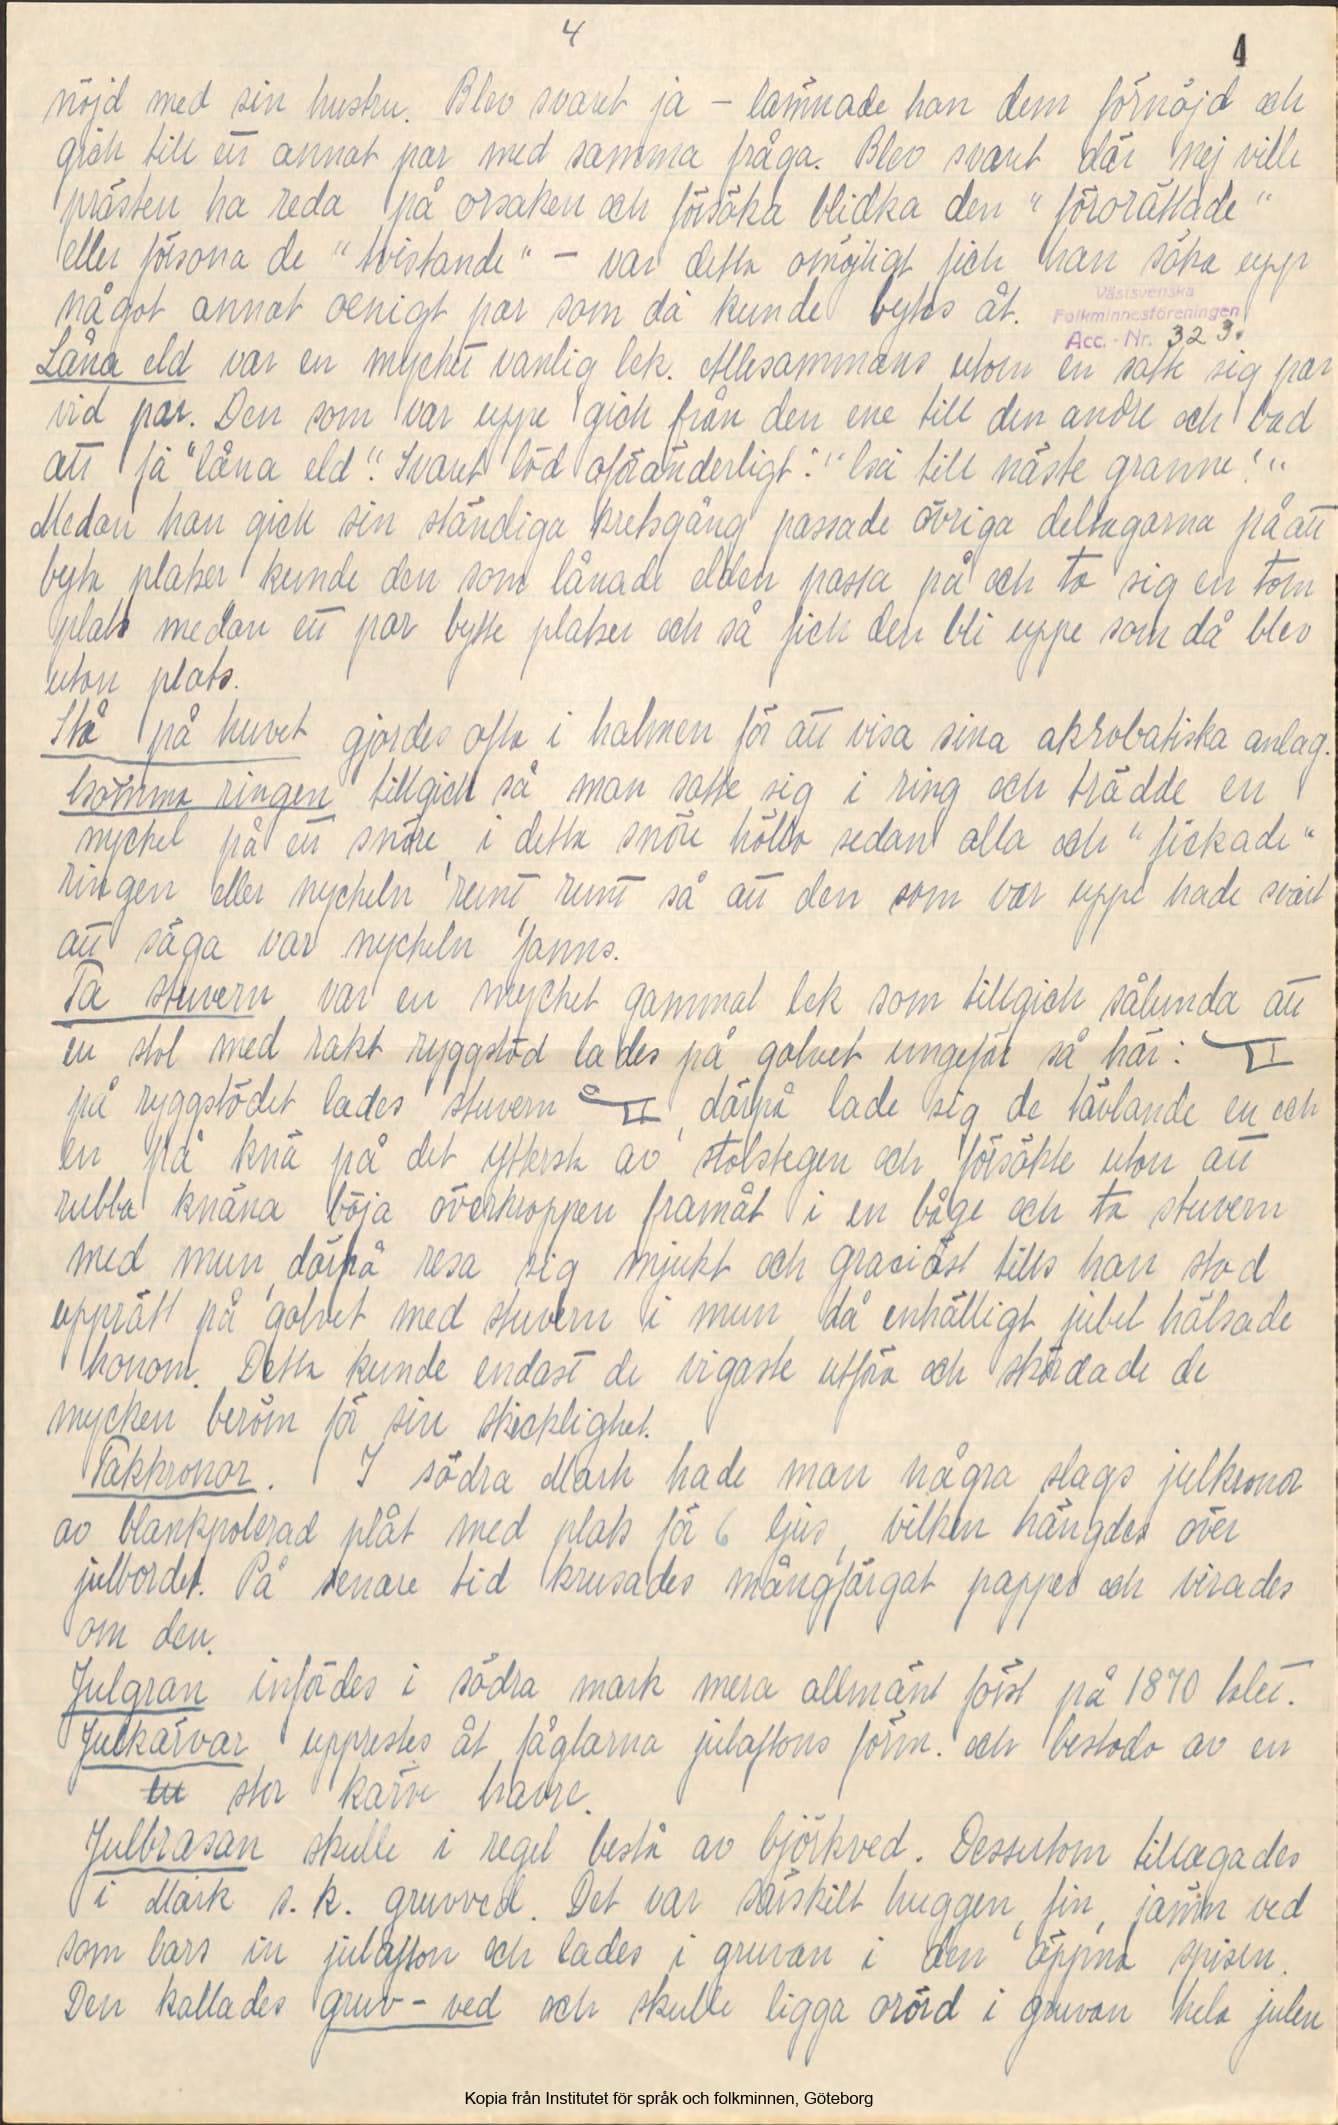 4
4
nöjd med sin hustru. Blev svaret ja – lämnade han dem förnöjd och
gick till ett annat par med samma fråga. Blev svaret där nej ville
prästen ha reda på orsaken och försöka blidka den "förorättade"
eller försona de "tvistande" – var detta omöjligt fick han söka upp
något annat oenigt par som då kunde bytes åt.
Västsvenska
Folkminnesföreningen
Acc.-Nr. 323.
Låna eld var en mycket vanlig lek. Allesammans utom en satte sig par
vid par. Den som var uppe gick från den ene till den andre och bad
att få "låna eld". Svaret löd oföränderligt: till näste granne!"
Medan han gick sin ständiga kretsgång passade övriga deltagarna på att
byta platser kunde den som lånade elden passa på och ta sig en tom
plats medan ett par bytte platser och så fick den bli uppe som då blev
utan plats.
Stå på huvet gjordes ofta i halmen för att visa sina akrobatiska anlag.
Gömma ringen tillgick så man satte sig i ring och trädde en
nyckel på ett snöre, i detta snöre höllo sedan alla och "fickade"
ringen eller nyckeln runt, runt så att den som var uppe hade svårt
att säga var nyckeln fanns.
Ta stuvern var en mycket gammal lek som tillgick sålunda att
en stol med rakt ryggstöd lades på golvet ungefär så här:
på ryggstödet lades stuvern, därpå lade sig de tävlande en och
en på knä på det yttersta av stolstegen och försökte utan att
rubba knäna böja överkroppen framåt i en båge och ta stuvern
med mun, därpå resa sig mjukt och graciöst tills han stod
upprätt på golvet med stuvern i mun, då enhälligt jubel hälsade
honom. Detta kunde endast de vigaste utföra och skördade de
mycken beröm för sin skicklighet.
Takkronor. I södra Mark hade man några slags julkronor
av blankpolerad plåt med plats för 6 ljus, vilken hängdes över
julbordet. På senare tid krusades mångfärgat papper och virades
om den.
Julgran infördes i södra mark mera allmänt först på 1870 talet.
Julkärvar upprestes åt fåglarna julaftons förm. och bestodo av en
en stor kärve havre.
Julbrasan skulle i regel bestå av björkved. Dessutom tillagades
i Mark s.k. gruvved. Det var särskilt huggen, fin, jämn ved
som bars in julafton och lades i gruvan i den öppna spisen.
Den kallades gruv-ved och skulle ligga orörd i gruvan hela julen
Kopia från Institutet för språk och folkminnen, Göteborg